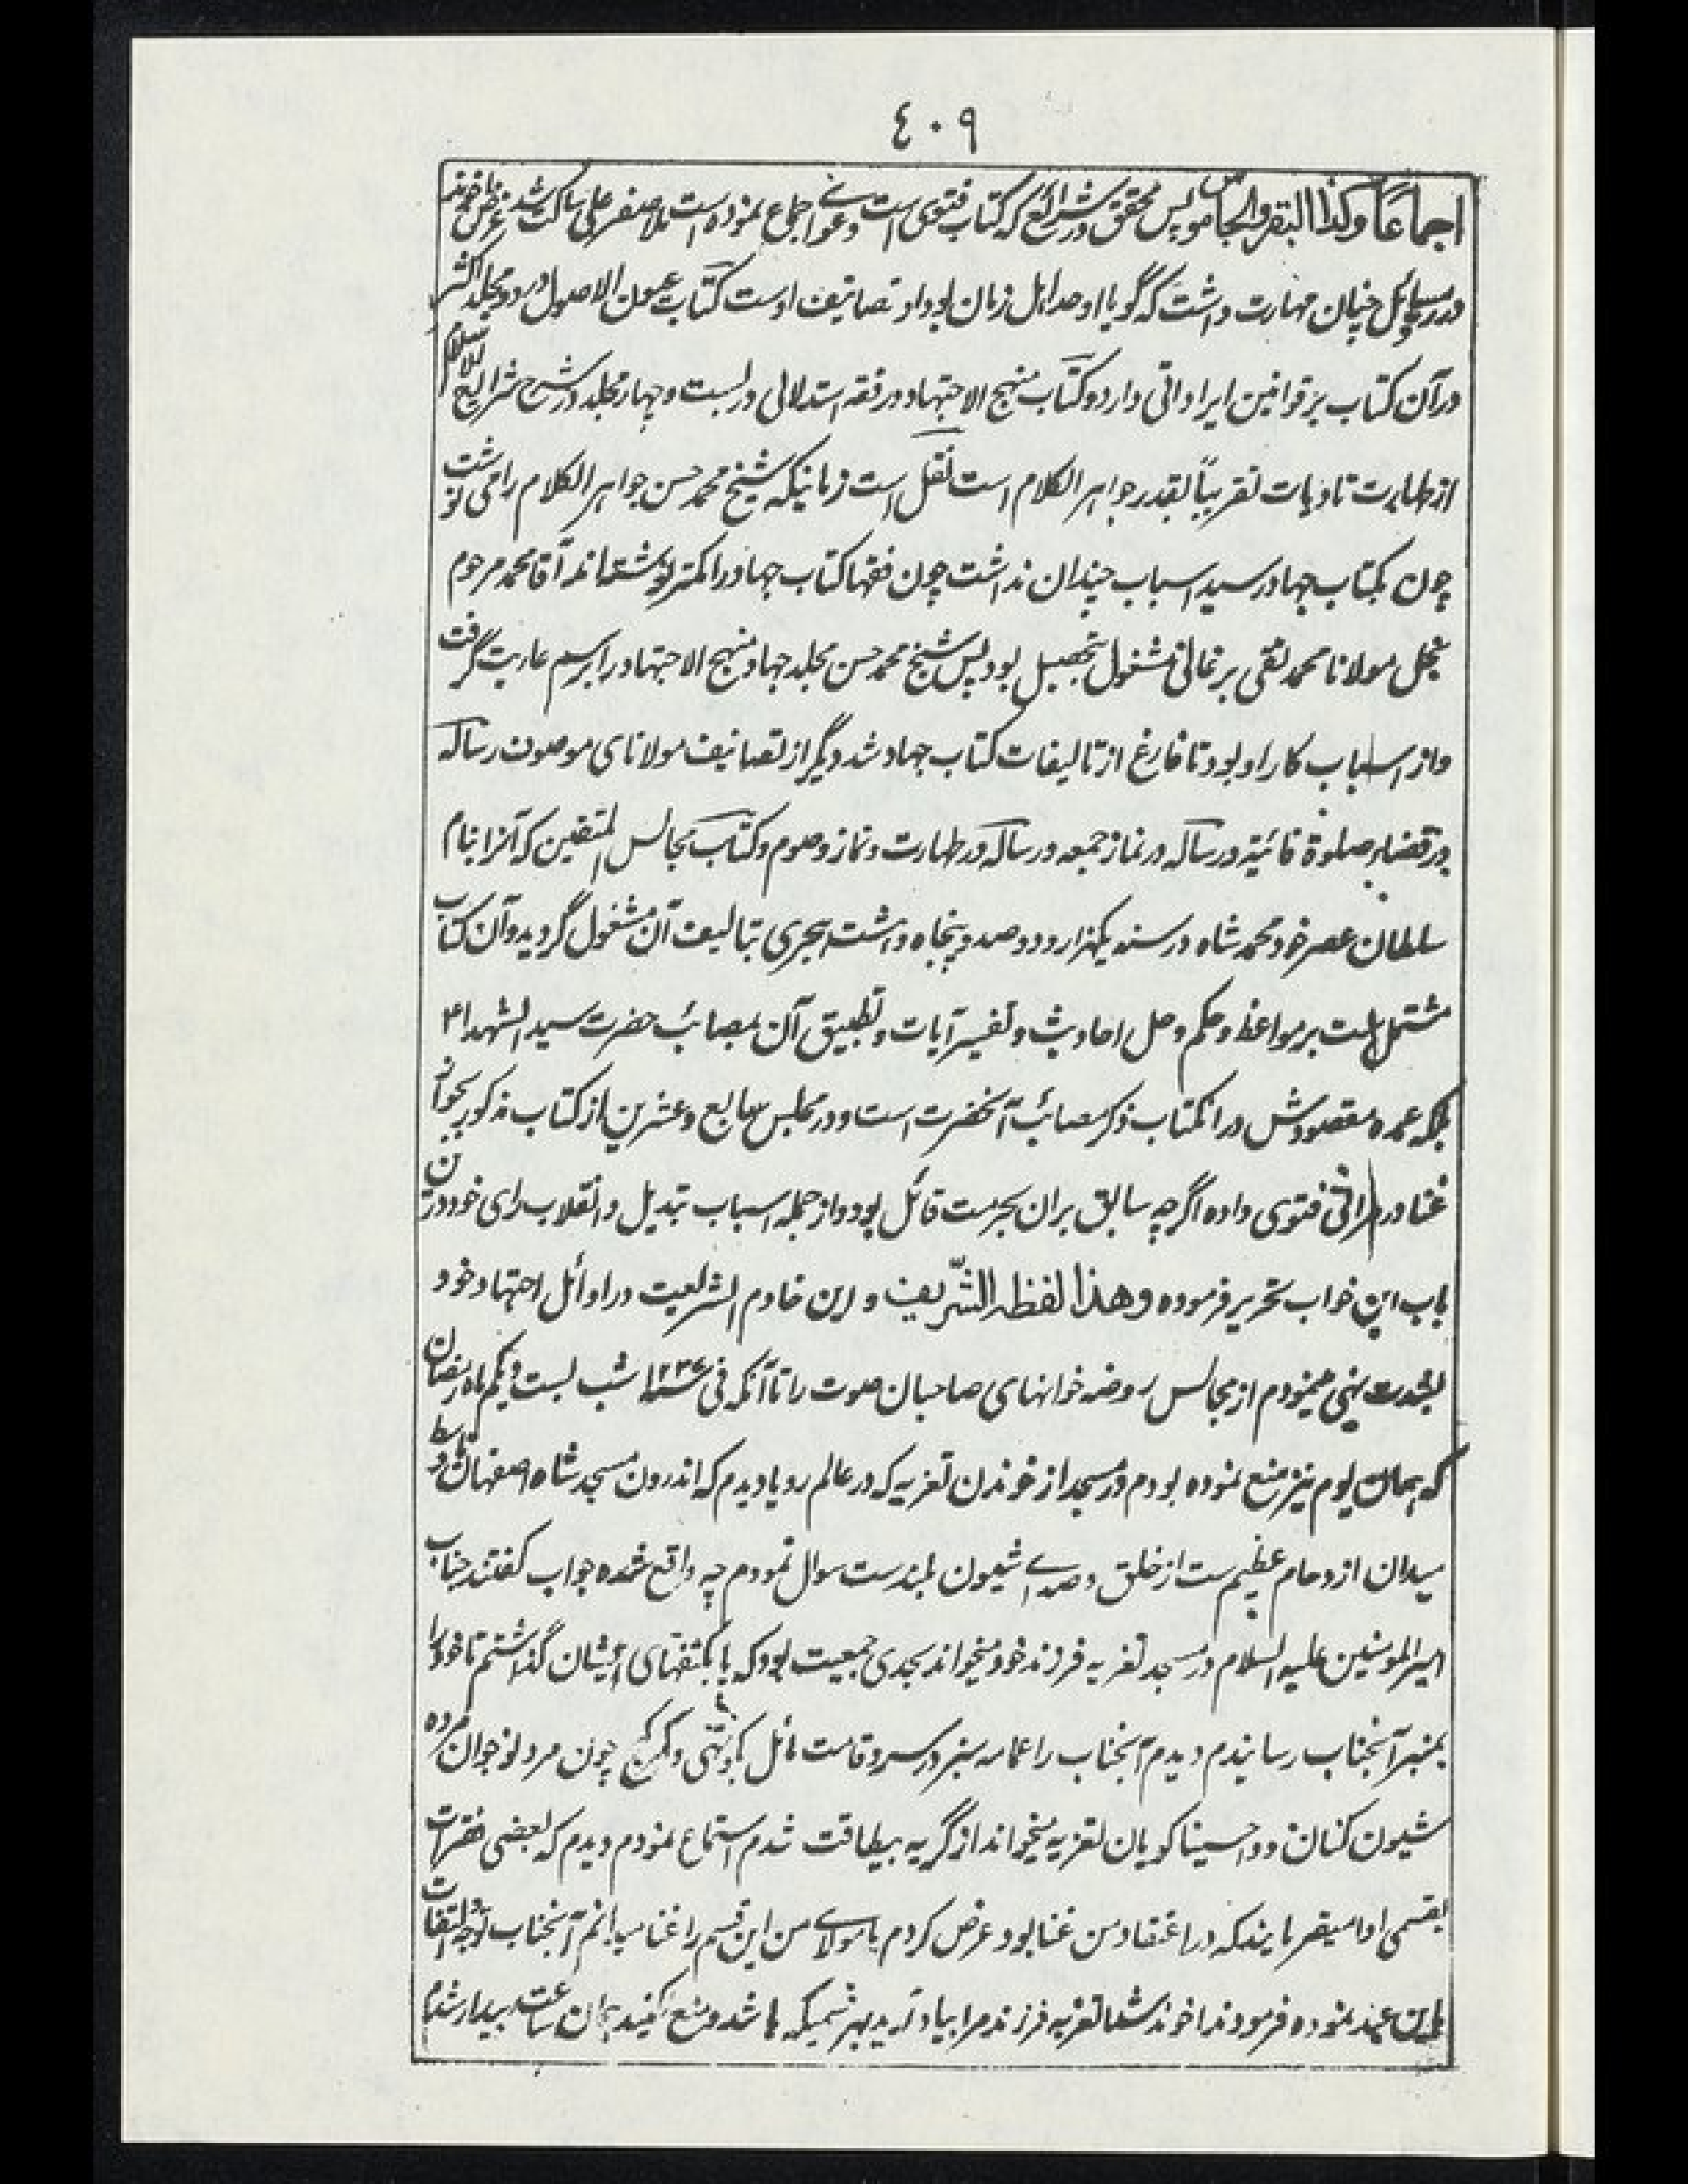 ٤٠٩
اجماعاً وکذا البقر والجاموس پس محقق در شرائع که کتاب فتوی است دعوای اجماع نموده است ملا صفر علی ساکت شد غرض آخوند
در رسائل چنان مهارت داشت که گویا اوحد اهل زمان بود و از تصانیف اوست کتاب عیون الاصول در دو مجلد اکثر
در آن کتاب بر قوانین ایراداتی دارد و کتاب منهج الاجتهاد در فقه استدلالی در بست و چهار مجلد در شرح شرایع الاسلام
از طهارت تا دیات تقریباً بقدر جواهر الکلام است نقل است زمانیکه شیخ محمد حسن جواهر الکلام را می نوشت
چون بکتاب جهاد رسید اسباب چندان نداشت چون فقها کتاب جهاد را کمتر نوشته‌اند آقا محمد مرحوم
نجل مولانا محمد تقی برغانی مشغول بتحصیل بود پس شیخ محمد حسن مجلد جهاد منهج الاجتهاد را برسم عاریت گرفت
و از اسباب کار او بود تا فارغ از تالیفات کتاب جهاد شد دیگر از تصانیف مولانای موصوف رساله
در قضاء صلوة فائیته و رساله در نماز جمعه و رساله در طهارت و نماز و صوم و کتاب مجالس المتقین که آنرا بنام
سلطان عصر خود محمد شاه در سنه یکهزار و دو صد و پنجاه و هشت هجری بتالیف آن مشغول گردید و آن کتاب
مشتمل است بر مواعظ و حکم و حل احادیث و تفسیر آیات و تطبیق آن بمصائب حضرت سید الشهداء
بلکه عمده مقصودش در انکتاب ذکر مصائب آنحضرت است و در مجلس سابع و عشرین از کتاب مذکور بجواز
غنا در مراثی فتوی داده اگرچه سابق بران بحرمت قائل بود و از جمله اسباب تبدیل و انقلاب رای خود درین
باب این خواب تحریر فرموده وهذا لفظه الشّریف و این خادم الشریعت در اوائل اجتهاد خود
بشدت نهی مینمودم از مجالس روضه خوانهای صاحبان صوت را تا آنکه فی سنه شب بست و یکم ماه رمضان
که همان یوم نیز منع نموده بودم در مسجد از خوندن تعزیه که در عالم رویا دیدم که اندرون مسجد شاه اصفهان و
میدان ازدحام عظیم ست از خلق و صدای شیون بلند ست سوال نمودم چه واقع شده جواب گفتند جناب
امیرالمومنین علیه السلام در مسجد تعزیه فرزند خود میخواند بحدی جمعیت بود که پا بکتفهای ایشان گذاشتم تا خود را
بمنبر آنجناب رسانیدم دیدم آنجناب را عمامه سبز در سر و قامت مائل بکوتهی و چون مرد نوجوان مرده
شیون کنان و واحسینا گویان تعزیه میخواند از گریه بیطاقت شدم استماع نمودم دیدم که بعضی فقرات
بقسمی ادا میفرمایند که در اعتقاد من غنا بود عرض کردم یا مولای من این قسم را غنا میدانم آنجناب توجه و التفات
باین عبد نموده فرمودند اخوند شما تعزیه فرزند مرا بیاد آرید بهر قسمیکه باشد و منع نکنید بهمان ساعت بیدار شدم